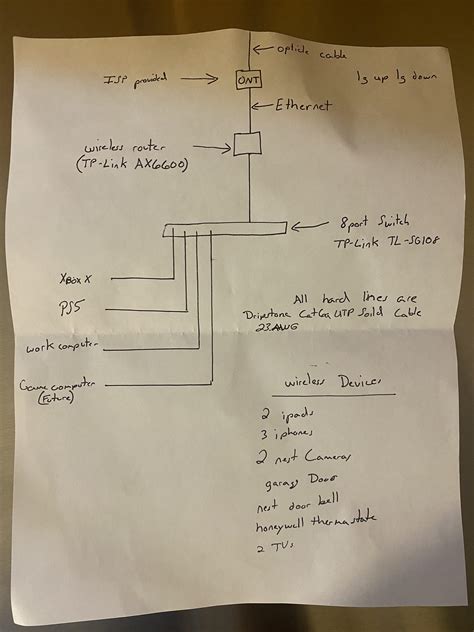 opticle cable
ISP provided
ONT
1g up 1g down
Ethernet
wireless router
(TP-Link AX6600)
8port Switch
TP-Link TL-SG108
XBox X
PS5
All hard lines are
Dripstone Cat6a UTP Soild Cable
23AWG
work computer
Game computer
(Future)
wireless Devices
2 ipads
3 iphones
2 nest Cameras
garage Door
nest door bell
honeywell thermastate
2 TVs